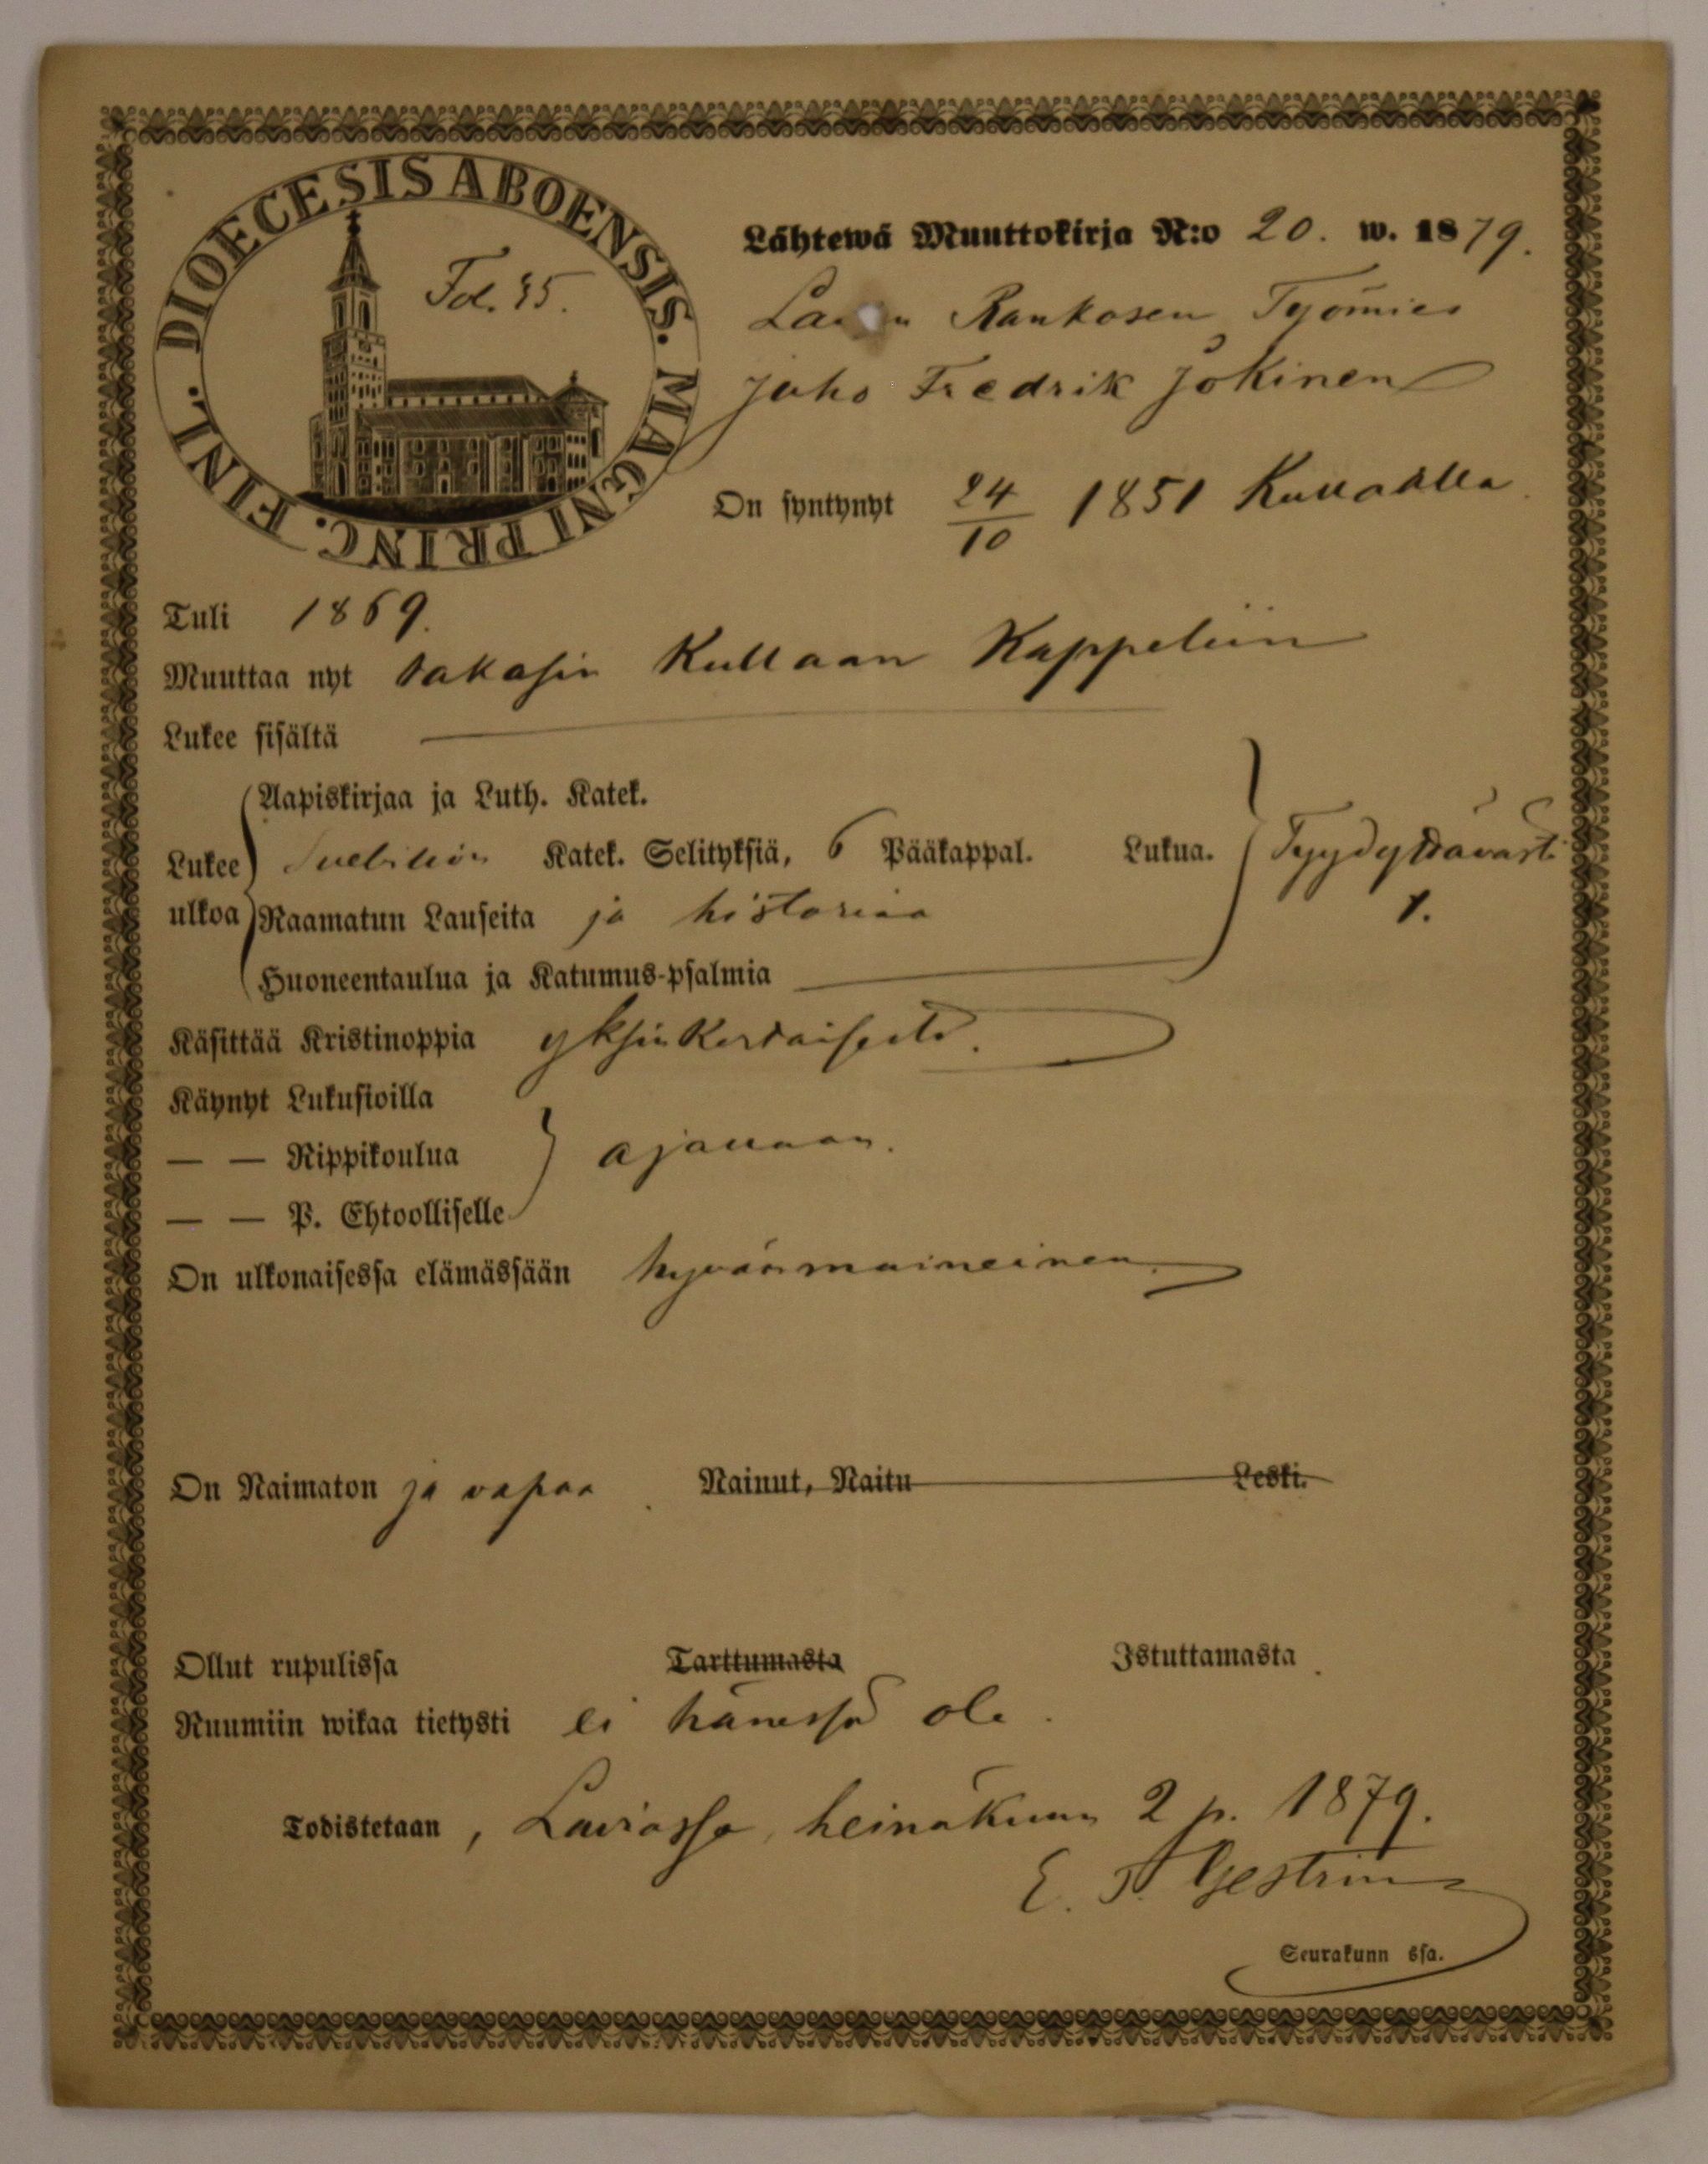 DIOECESIS ABOENSIS. MAGNI PRINC. FINL.
Fol. 35.
Lähtewä Muuttokirja N:o 20. w. 1879.
Rankosen Työmies
Juho Fredrik Jokinen
On syntynyt 24/10 1851 Kullaalla
Tuli 1869.
Muuttaa nyt takasin Kullaan Kappeliin
Lukee sisältä
Aapiskirjaa ja Luth. Katek.
Lukee ulkoa
Svebiliön Katek. Selityksiä, 6 Pääkappal. Lukua. Tyydyttävästi
Raamatun Lauseita ja historiaa 1.
Huoneentaulua ja Katumus-psalmia
Käsittää Kristinoppia yksinkertaisesti.
Käynyt Lukusioilla
— — Rippikoulua ajallaan.
— — P. Ehtoolliselle
On ulkonaisessa elämässään hyvänmaineinen.
On Naimaton ja vapaa. Nainut, Naitu Leski.
Ollut rupulissa Tarttumasta Istuttamasta.
Ruumiin wikaa tietysti ei hänessä ole.
Todistetaan, Laviassa, heinäkuun 2 p. 1879.
E. J. Gestrin
Seurakunn ssa.